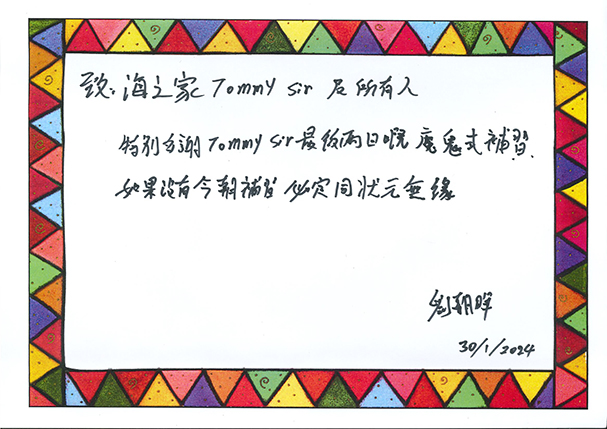 致：海之家 Tommy Sir 及所有人
特別多謝 Tommy Sir 最後兩日嘅魔鬼式補習.
如果沒有今期補習 必定同狀元無緣
劉朝暉
30/1/2024